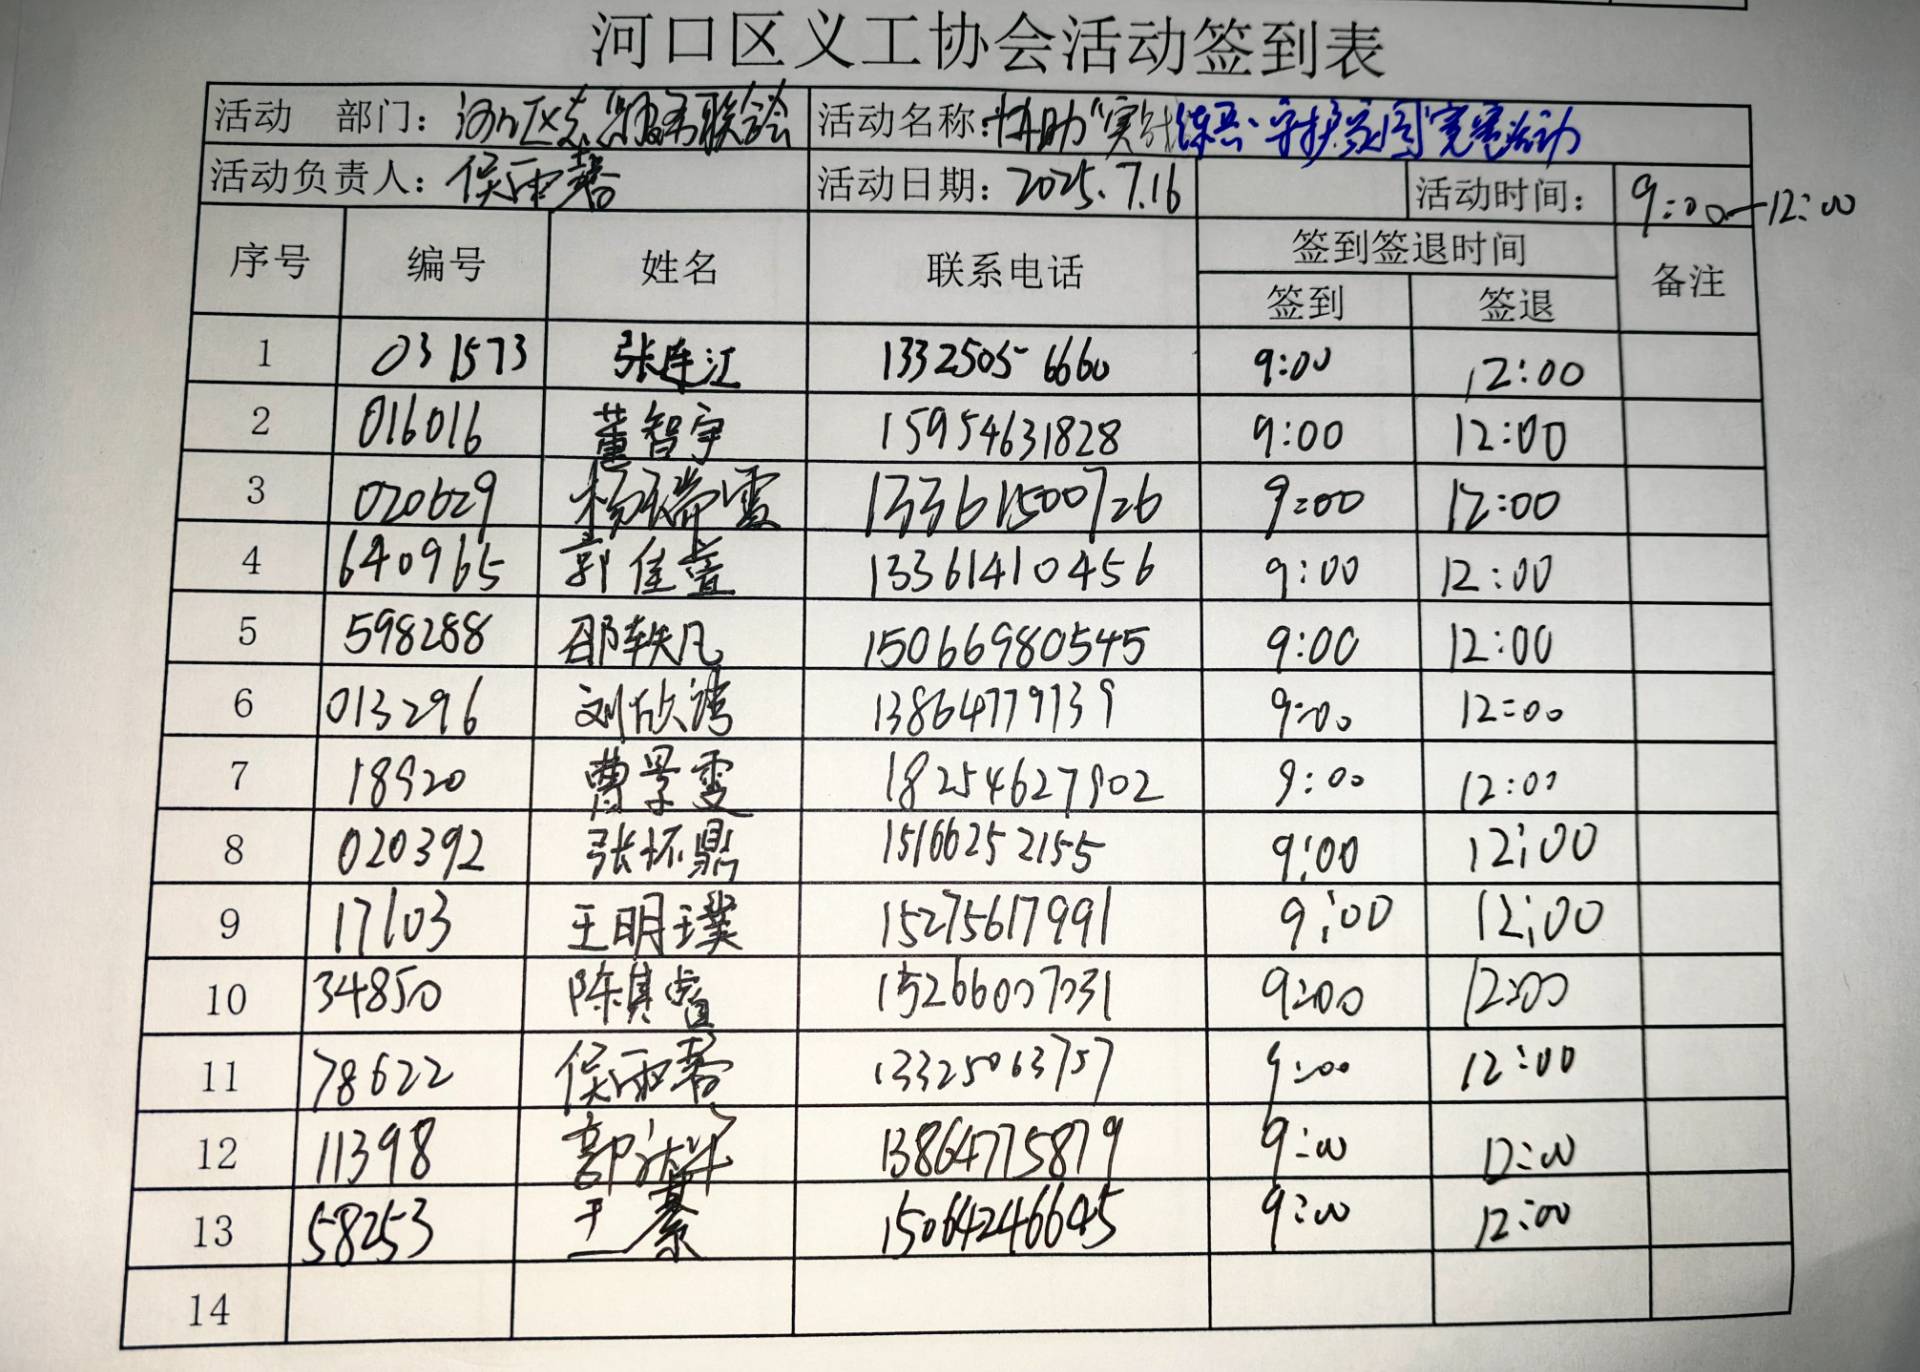 河口区义工协会活动签到表
活动 部门：河口区志愿服务联合会 活动名称：协助"实战练兵、守护家园"竞赛活动
活动负责人：侯雨馨 活动日期：2025.7.16 活动时间：9:00-12:00
序号 编号 姓名 联系电话 签到签退时间 备注
签到 签退
1 031573 张连江 13325056660 9:00 12:00
2 016016 董智宇 15954631828 9:00 12:00
3 020629 杨瑞雪 13361500726 9:00 12:00
4 640965 郭佳萱 13361410456 9:00 12:00
5 598288 邵轶凡 15066980545 9:00 12:00
6 013296 刘欣 13864779739 9:00 12:00
7 18920 曹景雯 18254627902 9:00 12:00
8 020392 张怀鼎 15166252155 9:00 12:00
9 17103 王明璞 15275617991 9:00 12:00
10 34850 陈其 15266007031 9:00 12:00
11 78622 侯雨馨 13325063757 9:00 12:00
12 11398 郭 13864775879 9:00 12:00
13 58253 王 15064246645 9:00 12:00
14